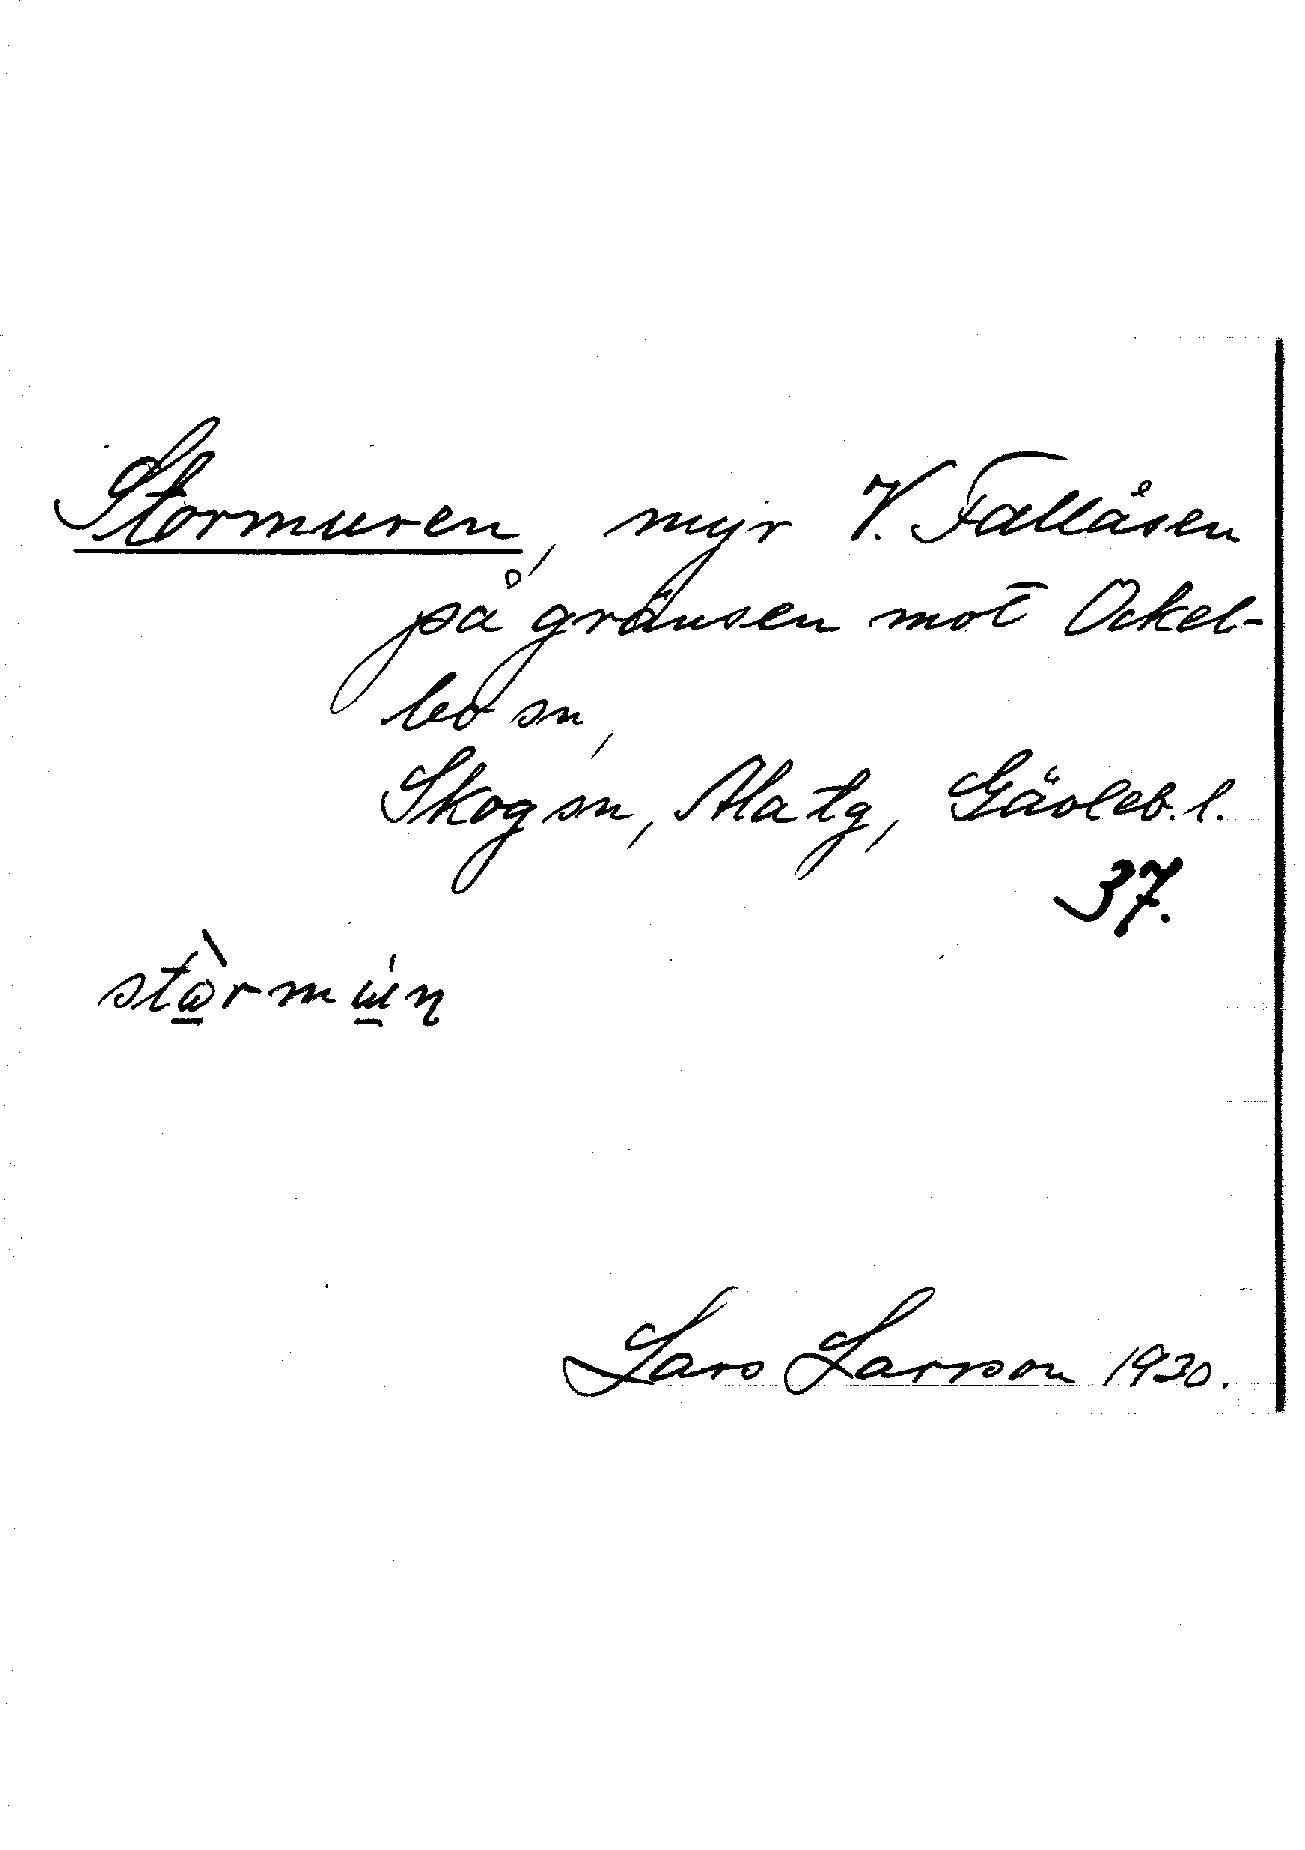 Stormuren, myr V. Fallåsen
på gränsen mot Ockel-
bo sn,
Skog sn, Ala tg, Gävleb. l.
37.
Lars Larsson 1930.